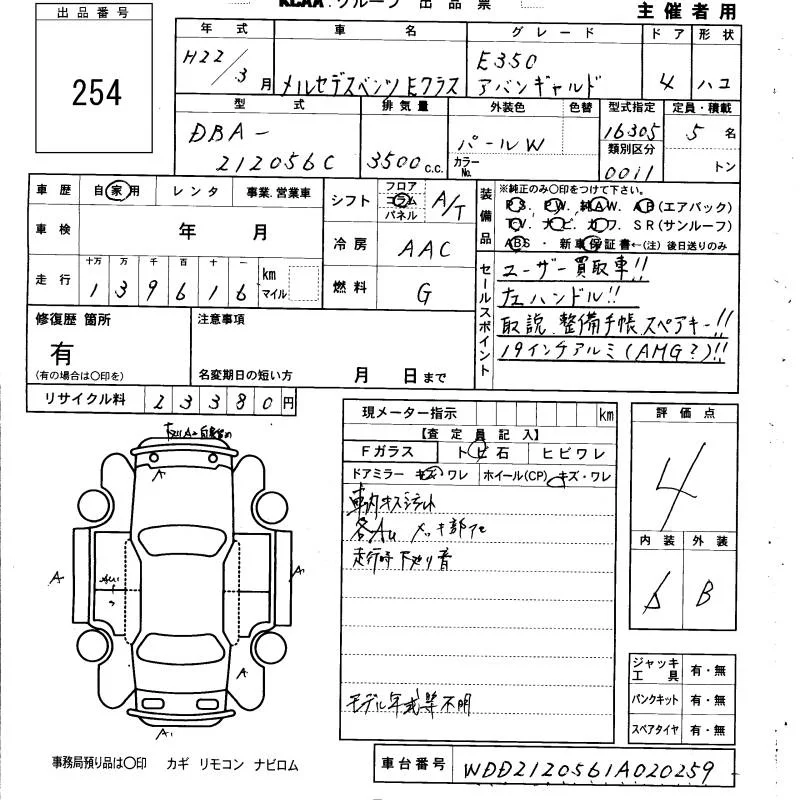 KCAA グループ 出品票
主催者用
出品番号
254
年式 車名 グレード ドア 形状
H22/3月 メルセデスベンツ Eクラス E350 アバンギャルド 4 ハコ
型式 排気量 外装色 色替 型式指定 定員・積載
DBA-212056C 3500c.c. パールW カラーNo. 16305 5名
類別区分 0011 トン
車歴 自家用 レンタ 事業.営業車
車検 年 月
走行 十万 万 千 百 十 一
139616 km マイル
シフト フロア コラム パネル A/T
冷房 AAC
燃料 G
装備品 ※純正のみ○印をつけて下さい。
P S. P W. 純 A W. A B (エアバック)
T V. ナビ. カワ. S R (サンルーフ)
ABS・新車保証書←(注)後日送りのみ
セールスポイント
ユーザー買取車!!
左ハンドル!!
取説.整備手帳.スペアキー!!
19インチアルミ(AMG?)!!
修復歴 箇所
有
(有の場合は○印を)
注意事項
名変期日の短い方 月 日まで
リサイクル料 23380円
現メーター指示 km
【査定員記入】
Fガラス トビ石 ヒビワレ
ドアミラー キズ・ワレ ホイール(CP) キズ・ワレ
車内キズシミ
各AU メッキ部
走行時下廻り音
モデル年式等不明
評価点
4
内装 外装
B
ジャッキ工具 有・無
パンクキット 有・無
スペアタイヤ 有・無
A
A
A
A
A1
事務局預り品は○印 カギ リモコン ナビロム
車台番号 WDD2120561A020259